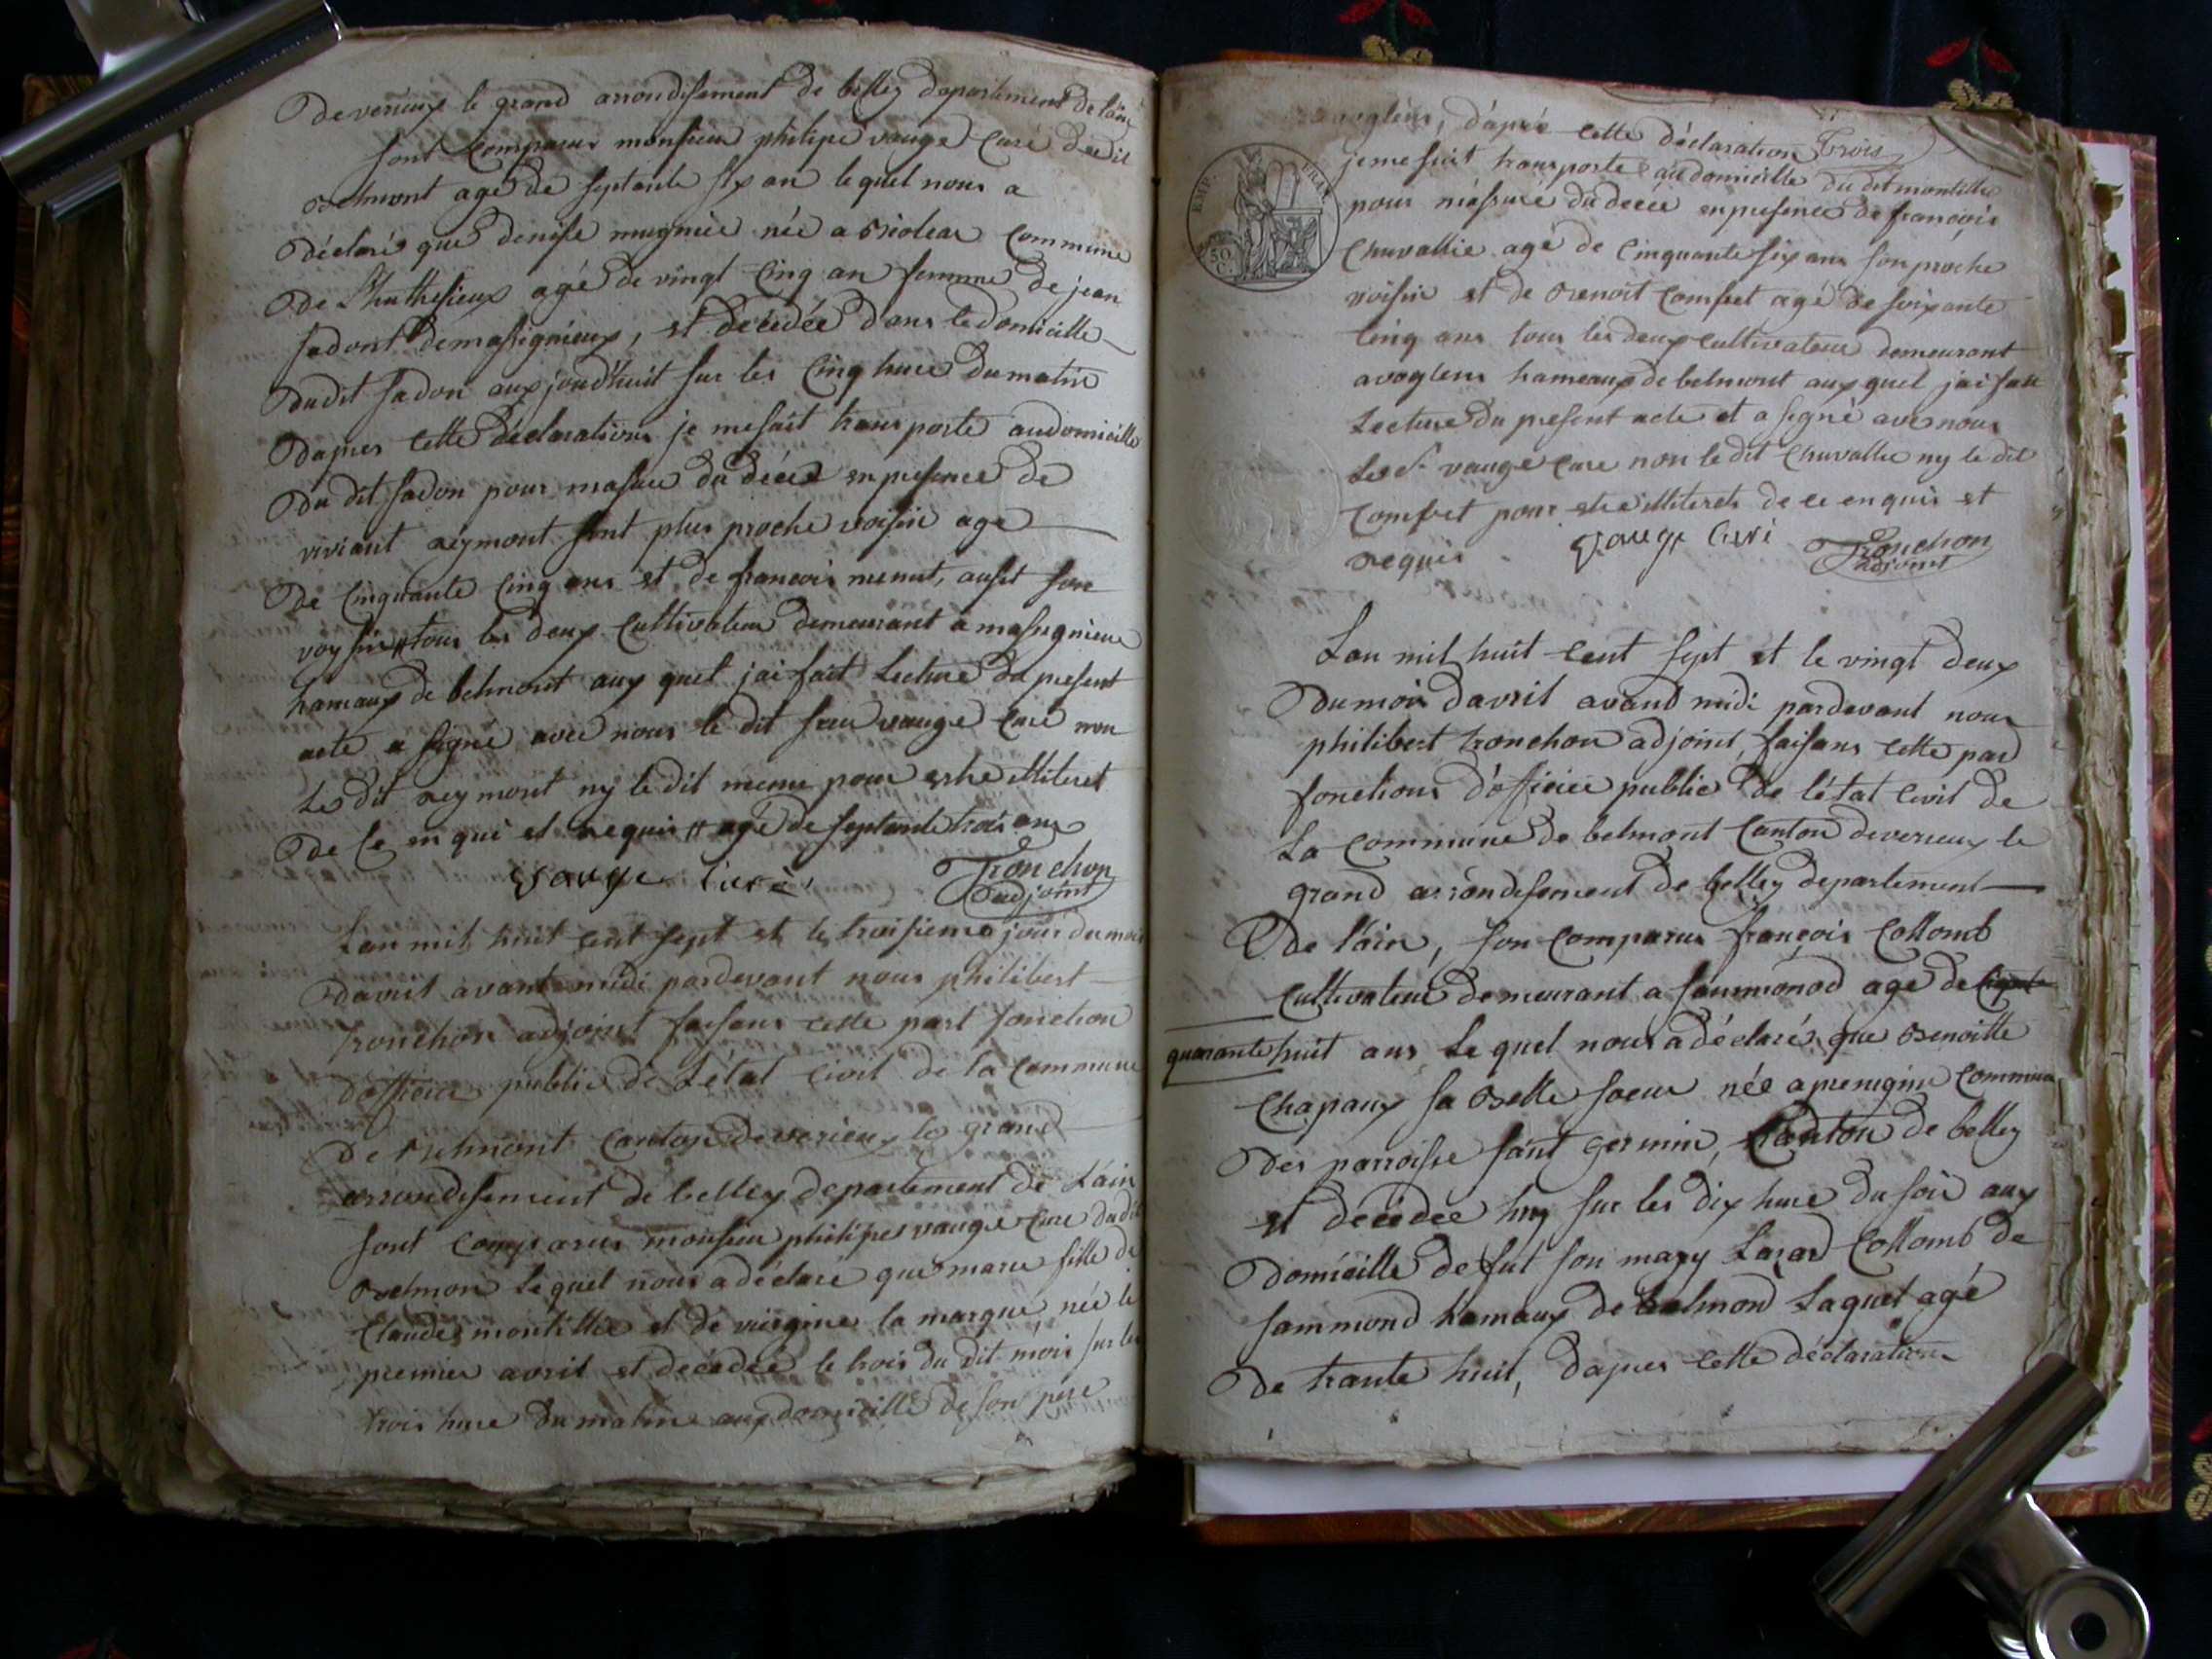 De verieux le grand arrondisement de belley departement de lain
sont comparus monsieur philipe vauge curé dudit
belmont agé de septante six an lequel nous a
déclaré que denise mugnier née a commune
De Thuthesieux agé de vingt cinq an femme de jean
sadont demassignieux, et decedée dans le domicille
dudit sadon aux joudhuit sur les cinq hure du matin
Dapres cette déclarations je me suit transporté audomicille
Du dit sadon pour masuré du décéé en presence de
viviant reymont sont plus proche voisin age
De cinquante cinq ans et de francois menut, ausit son
voysin # tous les deux cultivateur demeurant a massignieux
hamaux de belmont aux quel jai fait lecture du present
acte a signé avec nous le dit sieur vauge curé non
Le dit reymont ny le dit menu pour estre illiteret
De ce en qui et requis # agé de septante trois ans
vauge curé Tronchon
adjoint
Lan mil huit cent sept et le troisieme jour du mois
Davril avant midi pardevant nous philibert
tronchon adjoint faisans cette part fonction
dofficier public de Létat civil de la commune
De belmont canton de verieux le grand
arrondisement de belley departement de Lain
sont comparus monsieur philipe vauge curé dudit
belmon Lequel nous a déclaré que marie fille de
Claude montillie et de virginie la marque, née le
premier avril et décédée le trois du dit mois sur les
trois hure du matin aux domicille de son pere
avoglens, dapré cette déclaration Trois
je me suit transporté au domicille du dit montillie
pour màsuré du décéé en presence de françois
Chavallie agé de cinquante six ans son proche
voisin et de benoit comfret agé de soixante
cinq ans tous les deux cultivateur demeurant
avoglens hameaux de belmont aux quel jai fait
Lecture du present acte et a signé avec nous
Le sr vauge curé non le dit Chavallie ny le dit
comfret pour etre illiterets de ce enquis et
requis vauge curé Tronchon
adjoint
EMP. FRAN.
50
C.
Lan mil huit cent sept et le vingt deux
Dumois davril avand midi pardevant nous
philibert tronchon adjoint, faisans cette pard
fonctions dofficiée public de létat civil de
La commune de belmont canton de verieux le
grand arrondisement de belley departement
De lain, son comparus françois Collomb
Cultivateur demeurant a sammonod age de
quarante huit ans Le quel nous a déclaré que benoitte
Chapaux sa belle soeur née apremegin commune
Des parroisse sant germin, canton de belley
et décédée huy sur les dix hure du soir aux
Domicille de fut son mary Lazard Collomb de
sammond hamaux de belmond Laquel agé
De trante huit, Dapres cette déclaration